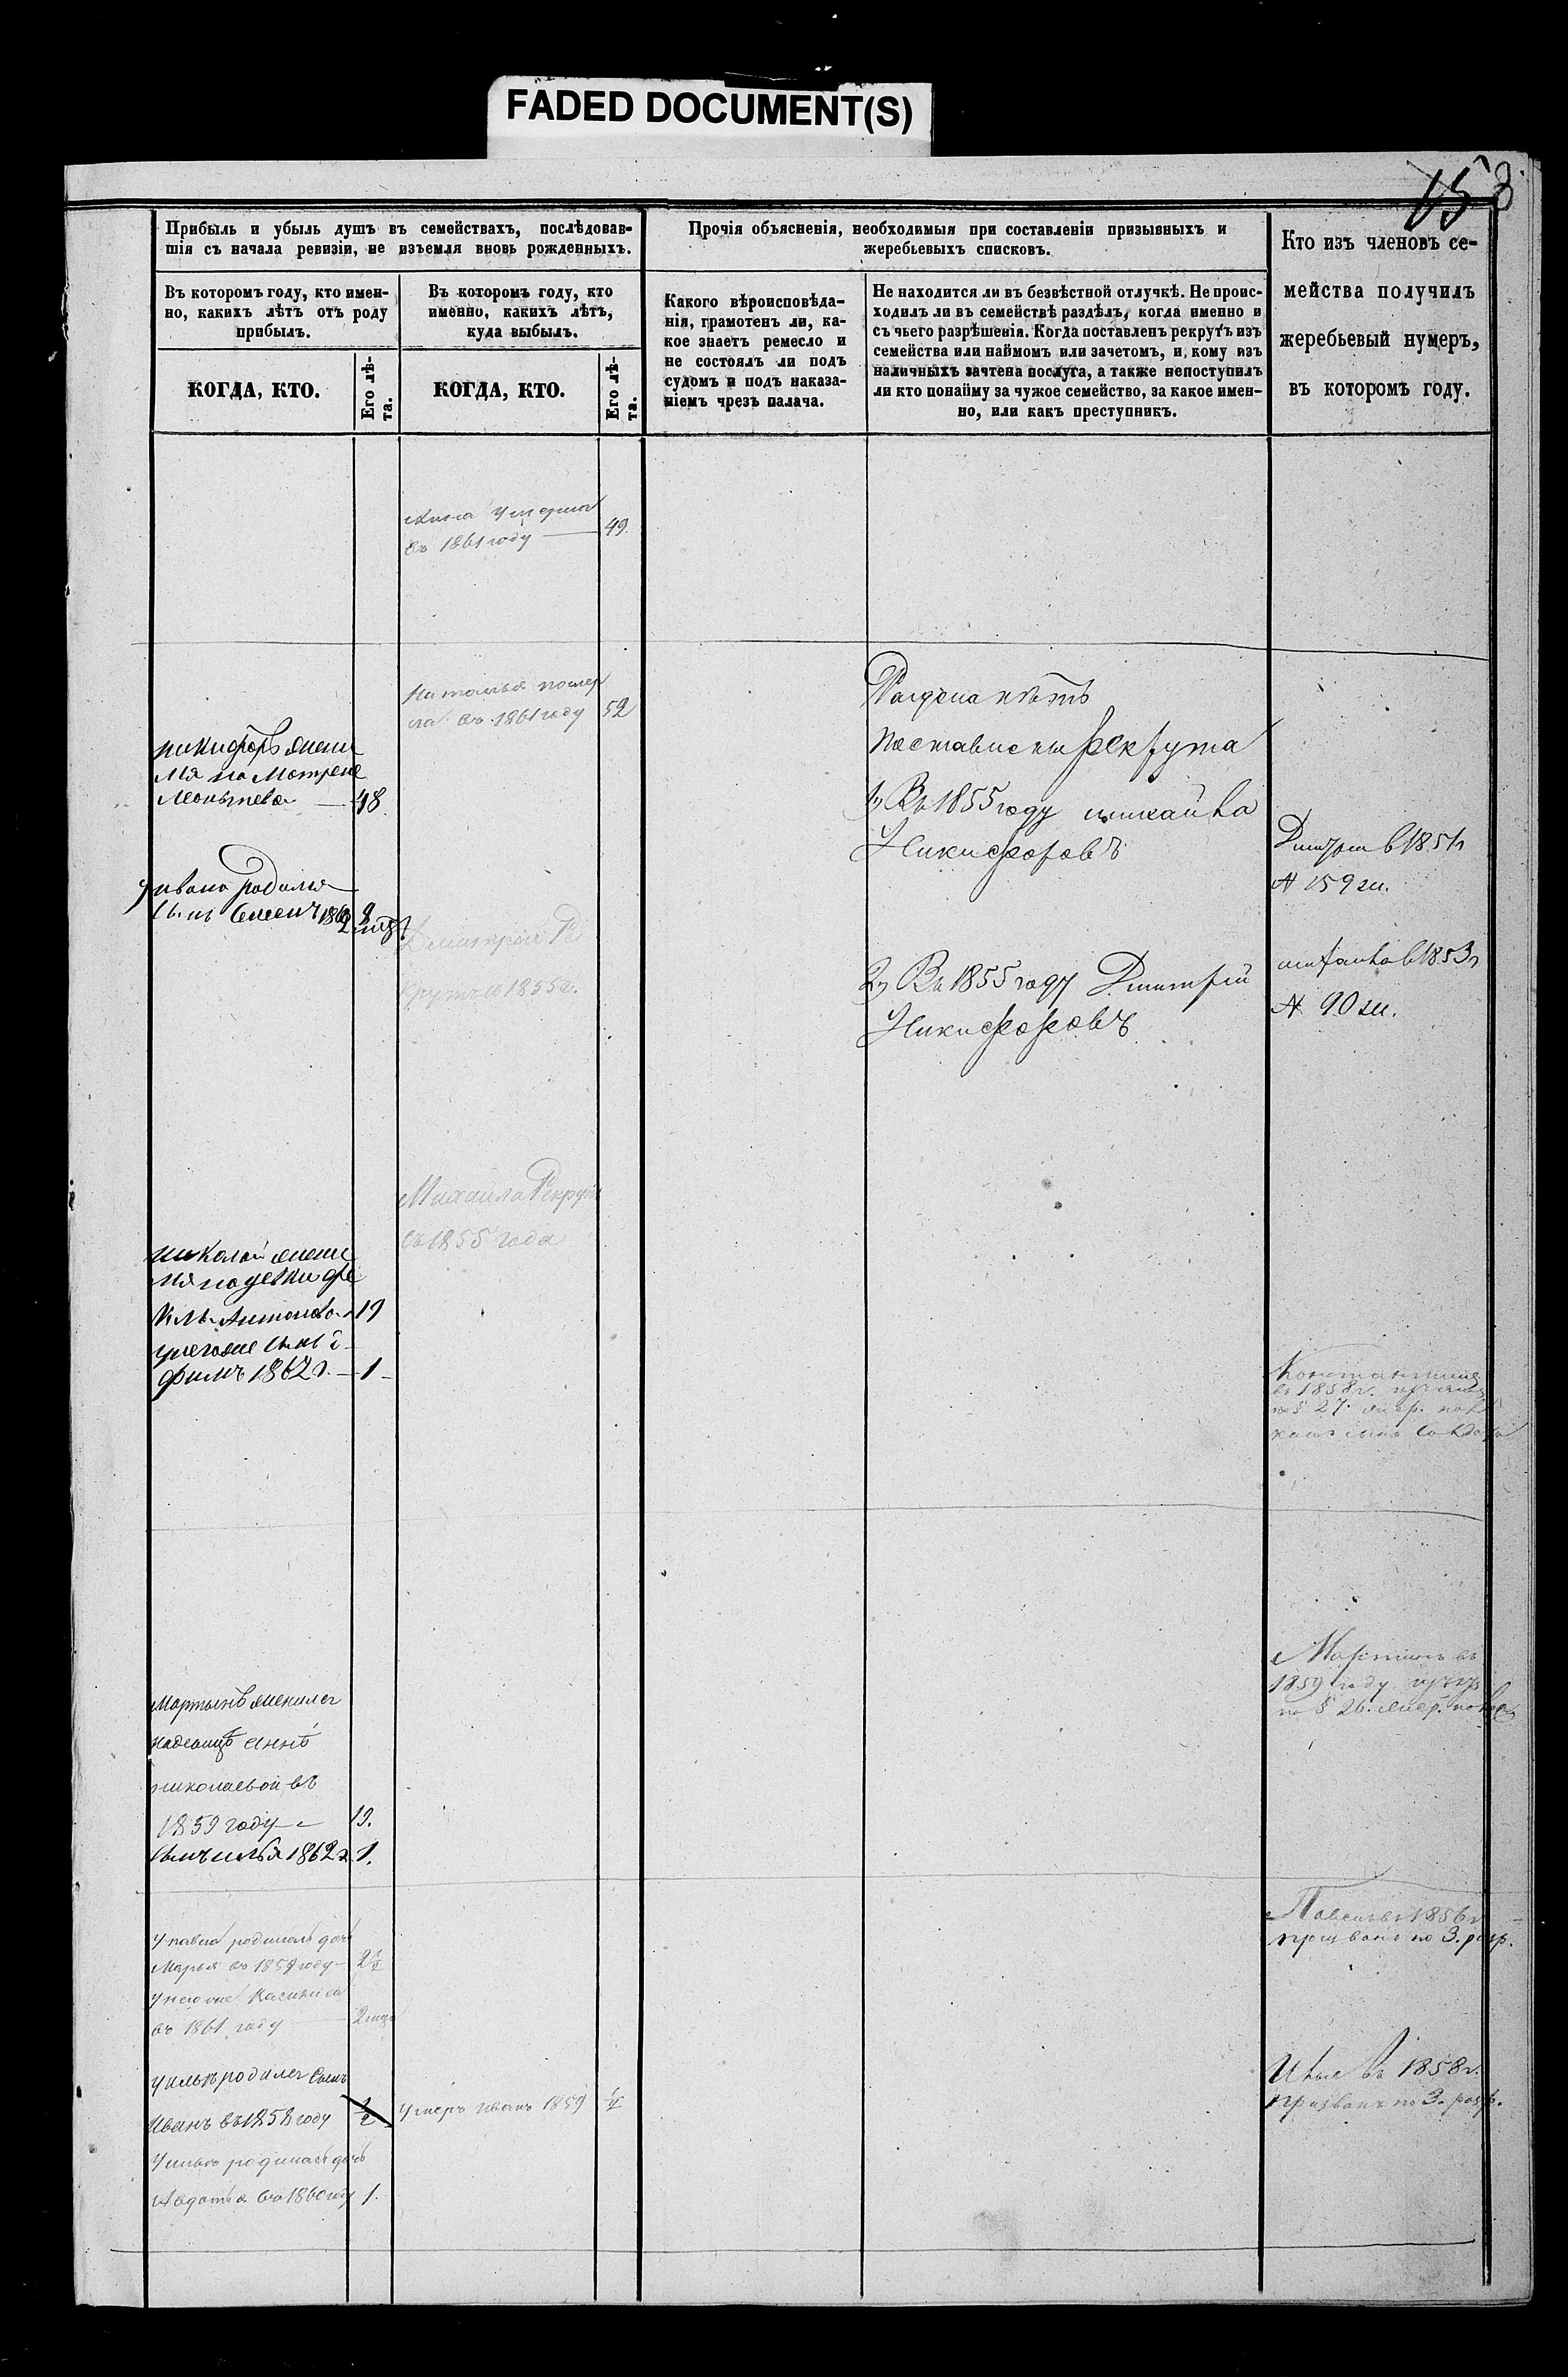 FADED DOCUMENT(S)
158
Прибыль и убыль душъ въ семействахъ, послѣдовав-
шія съ начала ревизіи, не изъемля вновь рожденныхъ.
Прочія объясненія, необходимыя при составленіи призывныхъ и
жеребьевыхъ списковъ.
Кто изъ членовъ се-
мейства получилъ
жеребьевый нумеръ,
въ которомъ году.
Въ которомъ году, кто имен-
но, какихъ лѣтъ отъ роду
прибылъ.
Въ которомъ году, кто
именно, какихъ лѣтъ,
куда выбылъ.
Какого вѣроисповѣда-
нія, грамотенъ ли, ка-
кое знаетъ ремесло и
не состоялъ ли подъ
судомъ и подъ наказа-
ніемъ чрезъ палача.
Не находится ли въ безвѣстной отлучкѣ. Не проис-
ходилъ ли въ семействѣ раздѣлъ, когда именно и
съ чьего разрѣшенія. Когда поставленъ рекрутъ изъ
семейства или наймомъ или зачетомъ, и кому изъ
наличныхъ зачтена послуга, а также непоступилъ
ли кто понайму за чужое семейство, за какое имен-
но, или какъ преступникъ.
КОГДА, КТО.
Его лѣ-
та.
КОГДА, КТО.
Его лѣ-
та.
умерла
въ 1861 году — 49.
Наталья помер
ла въ 1861 году 52
никифоръ жени
на Матрене
Леонтьева — 48.
у ивана родился
сынъ Семенъ 1862
Дмитрій Ре
крутъ въ 1855 г.
Михайла Рекрутъ
въ 1855 года
николай жени
Антонова 19
у него же сынъ
фимъ 1862 г. — 1
Мартынъ женился
на девице Анне
николаевой въ
1859 году 19.
сынъ илья 1862 г. 1.
У павла родилась дочь
Марья въ 1859 году — 2½
У него же
въ 1861 году — 2 мца
У ильи родился сынъ
Иванъ въ 1858 году ½
Умеръ иванъ 1859 ½
У ильи родилась дочь
Авдотья въ 1860 году 1.
Раздела нѣтъ
поставлены рекрута
1, Въ 1855 году михайла
Никифоровъ
2, Въ 1855 году Дмитрій
Никифоровъ
Дмитрій в 1851 г
№ 159 зи.
михайла в 1853 г
№ 90 зи.
Константинъ
въ 1858 г.
по § 27.
Мартынъ въ
1859 году
по § 26.
Павелъ въ 1856 г.
призванъ по 3. разр.
Илья въ 1858 г.
призванъ по 3. разр.